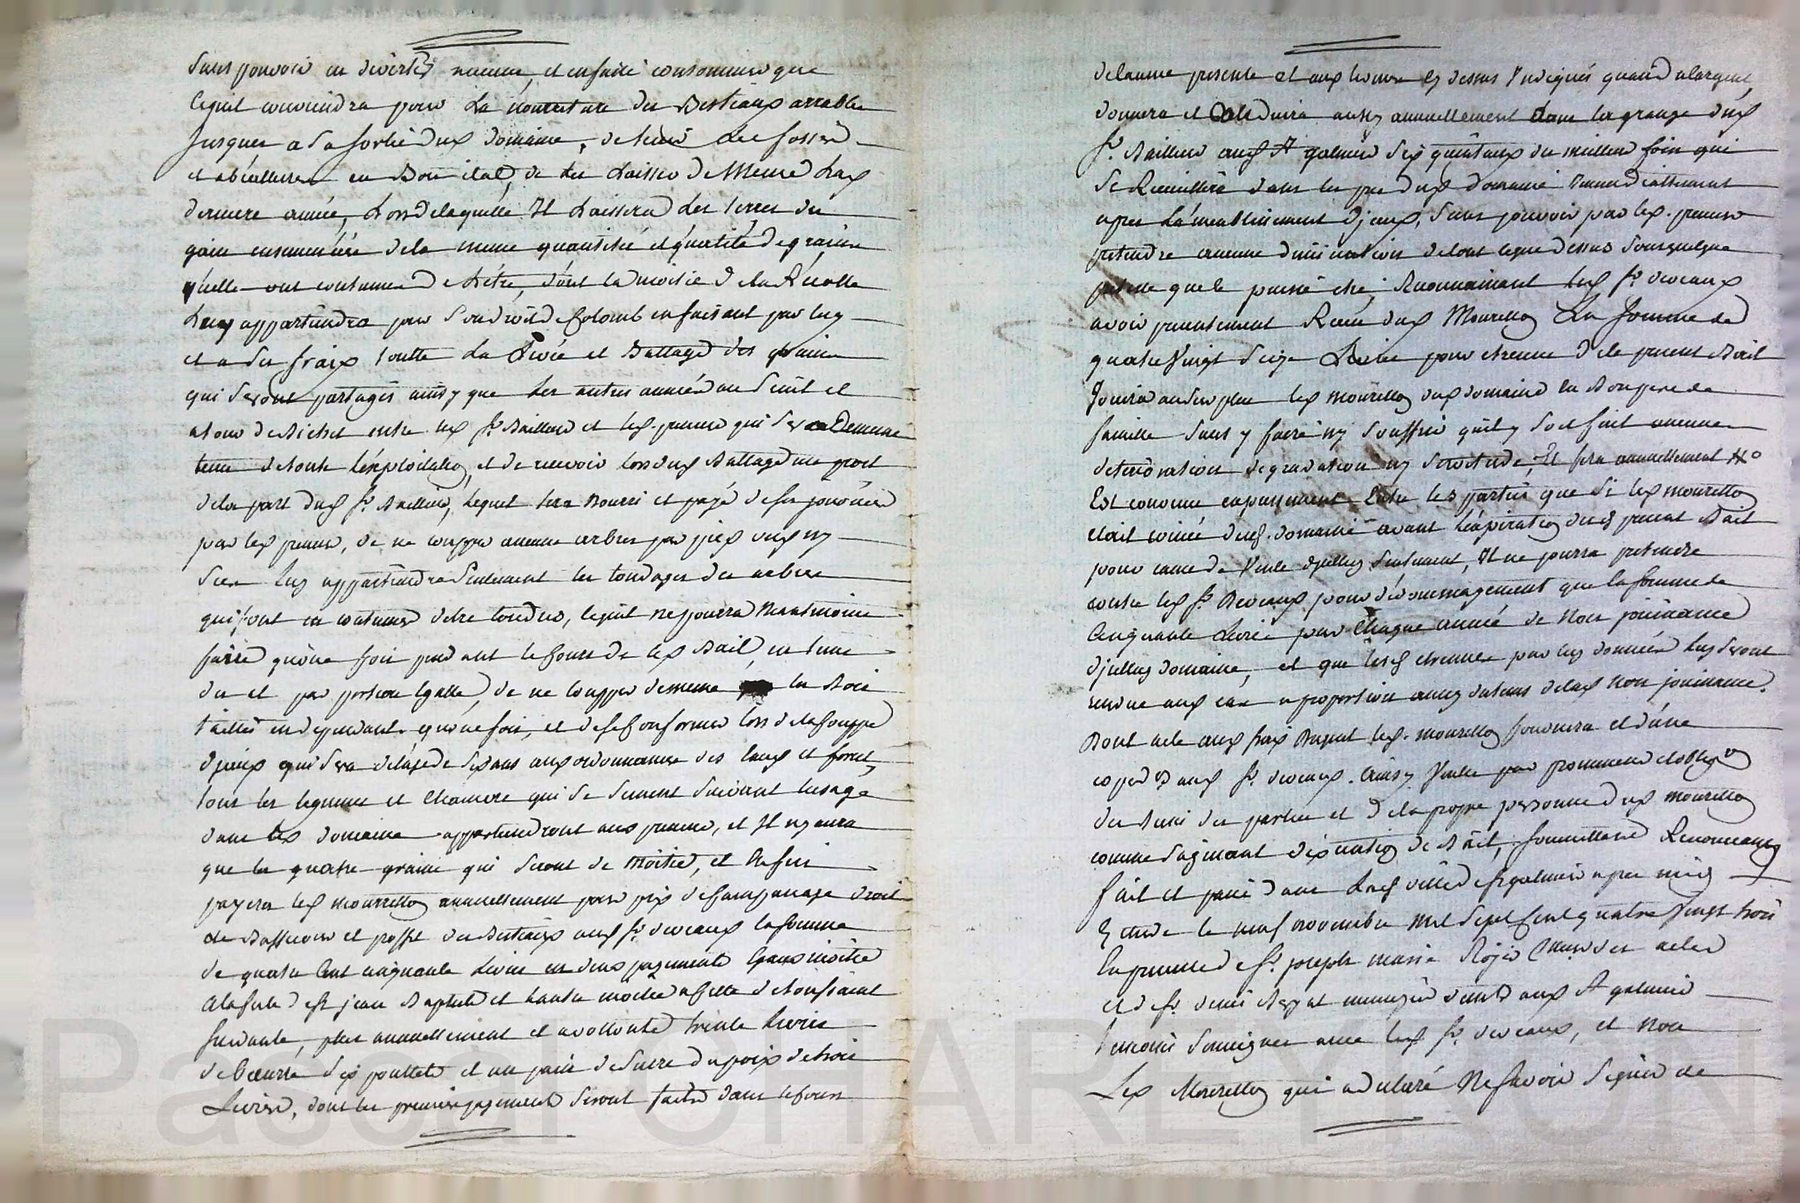 Sans pouvoir en divertir aucune, et en faire consommer que
ce quil conviendra pour La nourriture des Bestiaux arrables
Jusques a Sa sortie dud domaine, de tenir les fossés
en Bon état, de les Laisser de Meme Lad
derniere année, Lors de laquelle Il Laissera Les terres du
gain ensemencées de la meme quantité et qualité de grains
quelles ont coutume d'Etre, dont la moitié de la Récolte
Luy appartiendra pour Son droit de Colomb en faisant par luy
et a Ses fraix toutte La Levée et Battage des grains
qui Seront partagés ainsy que Les autres années au Seüil et
entre led Sr. Bailleur et led. preneur qui Sera
tenu de toute Lexploitation, et de recevoir lors dud Battage un
de la part dud Sr. Bailleur, lequel sera nourri et payé de Ses journées
par led preneur, de ne coupper aucune arbres par pied vifs ny
Secs Luy appartiendra Seulement les tondages des arbres
qui sont en coutume detre tondus, lequel ne pourra neantmoins
faire qu'une fois pendant le Cours de led Bail, en tems
du et par portion Egalle, de ne Coupper de meme les Bois
taillis en dependant qu'une fois, et de se Conformer lors de la Couppe
diceux qui Sera de lage de Six ans aux ordonnances des Eaux et forets,
tous les legumes et Chanvre qui Se Sement Suivant lusage
dans led domaine appartiendront aux preneur, et Il ny aura
que les quatre grains qui Seront de moitié, et Enfin
payera led mourellon annuellement pour prix de Champanage droit
de Basse Cour et proffit des Bestiaux aud Sr. deveaux la Somme
de quatre Cent cinquante Livres en deux payements Egaux moitié
a la fete de St jean Baptiste et lautre moitié a Celle de toussaint
Suivante, plus annuellement et a volonté trente Livres
de Beurre Six poullets et un pain de Sucre du poix de trois
Livres, dont les premiers payements Seront faits dans le Cours
de l'année presente et aux termes cy dessus Indiqués quand a l'argent,
donnera et Conduira aussy annuellement dans les granges dud
Sr. Bailleur aud St galmier Six quintaux du meilleur foin qui
Se Recueillera dans les pré dud domaine Immediatement
apres diceux, Sans pouvoir par led. preneur
pretendre aucune diminution de tout ce que dessus Sous quelque
pretexte que le puisse etre; Reconnaissant led Sr. deveaux
avoir presentement Recu dud Mourellon La Somme de
quatre Vingt Seize Livres pour etrenne de le present Bail
Jouira au Surplus led mourellon dud domaine en Bon pere de
famille Sans y faire ny Souffrir quil y Soit fait aucune
deterioration degradation ny Servitude, Et sera annuellement
Est convenu expressement Entre les parties que Si led mourellon
etait evincé dud. domaine avant l'expiration dud present Bail
pour cause de Vente d'icelluy Seulement, Il ne pourra pretendre
contre led Sr. Deveaux pour dedommagement que la Somme de
Cinquante Livres par Chaque année de Non jouissance
d'icelluy domaine, et que lesd etrennes par luy données luy Seront
rendue aud cas a proportion aussy du tems de lad Non jouissance.
Dont acte aux fraix Duquel led. mourellon fournira et d'une
copie aud Sr. deveaux. Ainsy Voulu par promesses
des Biens des parties et de la propre personne dud mourellon
comme Sagissant d'exploitation de Bail, soumettant Renonceant
fait et passé dans Lad ville de St galmier apres midy
Etude le neuf novembre mil Sept Cent quatre Vingt trois
En presence de Sr. joseph marie
et de Sr. denis menuisier demt aud St galmier
temoins Soussignes avec led Sr. deveaux, et non
Led Mourellon qui a declaré Ne Savoir Signer de
Pascal CHAREYRON